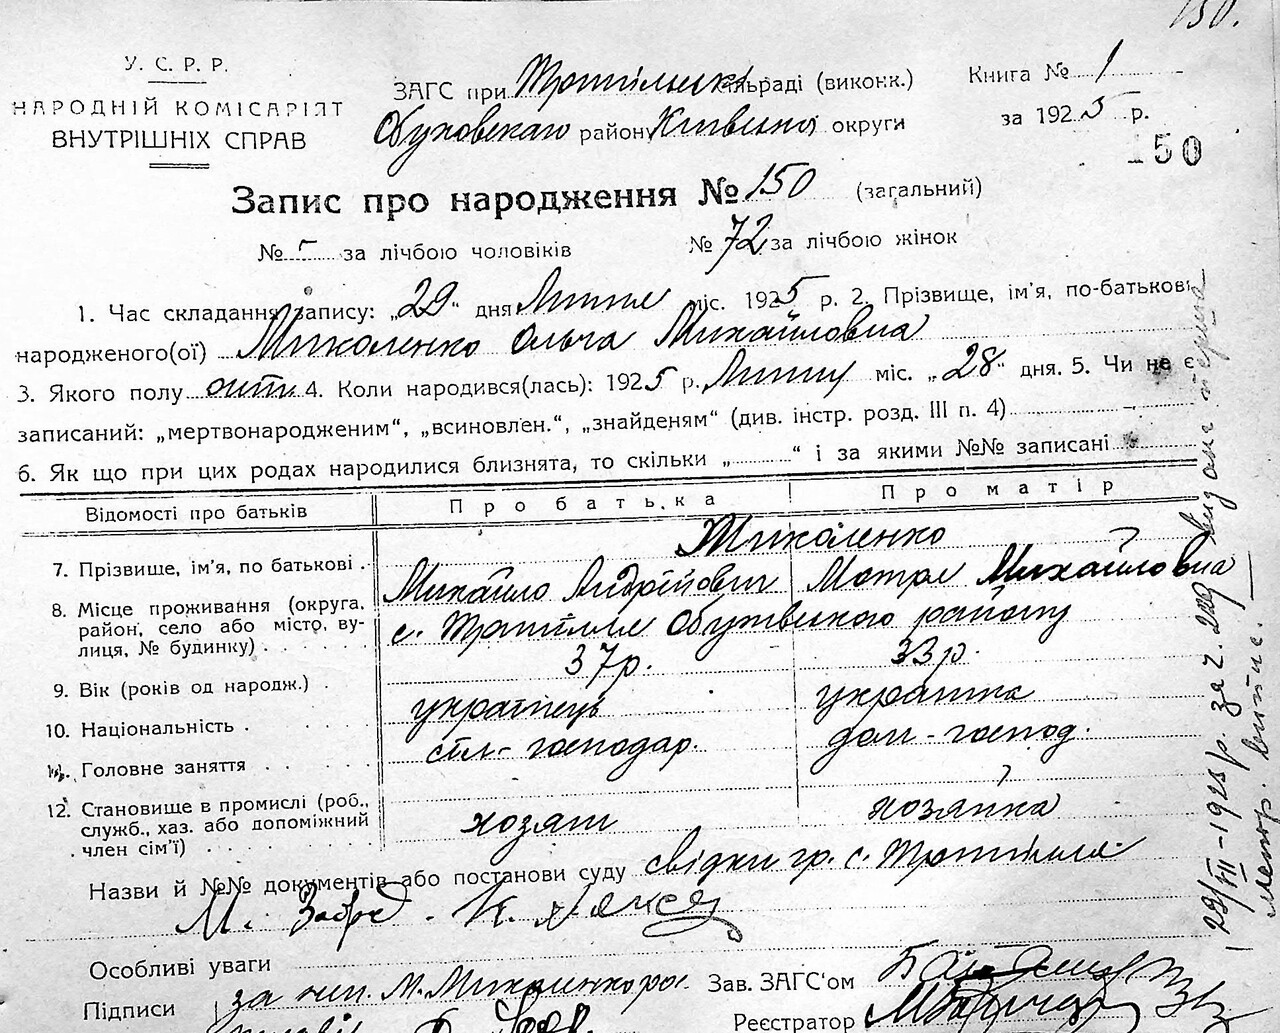 150.
У. С. Р. Р.
НАРОДНІЙ КОМІСАРІЯТ
ВНУТРІШНІХ СПРАВ
ЗАГС при Трипільській сільраді (виконк.)
Обуховскаго район Київської округи
Книга № 1
за 1925 р.
150
Запис про народження № 150 (загальний)
№ - за лічбою чоловіків № 72 за лічбою жінок
1. Час складання запису: „29" дня Липня міс. 1925 р. 2. Прізвище, ім'я, по-батькові
народженого(ої) Миколенко Ольга Михайловна
3. Якого полу 4. Коли народився(лась): 1925 р. Липня міс. „28" дня. 5. Чи не є
записаний: „мертвонародженим", „всиновлен.", „знайденям" (див. інстр. розд. III п. 4) -
6. Як що при цих родах народилися близнята, то скільки „ " і за якими №№ записані
Відомості про батьків Про батька Про матір
Миколенко
7. Прізвище, ім'я, по батькові . Михайло Андрійович Мотря Михайловна
8. Місце проживання (округа, с. Трипілля Обухівського району
район, село або місто, ву-
лиця, № будинку) . . . . . .
9. Вік (років од народж.) . 37 р. 33 р.
10. Національність . . . . . українець українка
11. Головне заняття . . . . . сіл-господар. дом-господ.
12. Становище в промислі (роб., хозяїн хозяйка
служб., хаз. або допоміжний
член сім'ї) . . . . . . . .
Назви й №№ документів або постанови суду свідки гр. с. Трипілля
М. К.
Особливі уваги
Підписи за неп. М. Миколенко Зав. ЗАГС'ом
Реєстратор
29/VII-1925 р. за ч. видано перша
метр. випис.